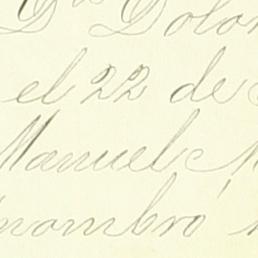 Dª Dolor
el 22 de
Manuel M
nombró